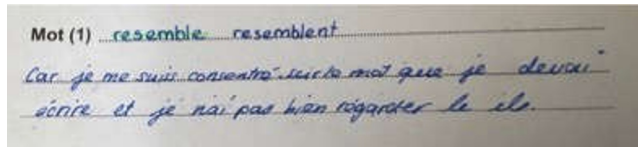 Mot (1) resemble resemblent
Car je me suis consentré sur le mot que je devai
écrire et je n'ai pas bien régarder le ils.